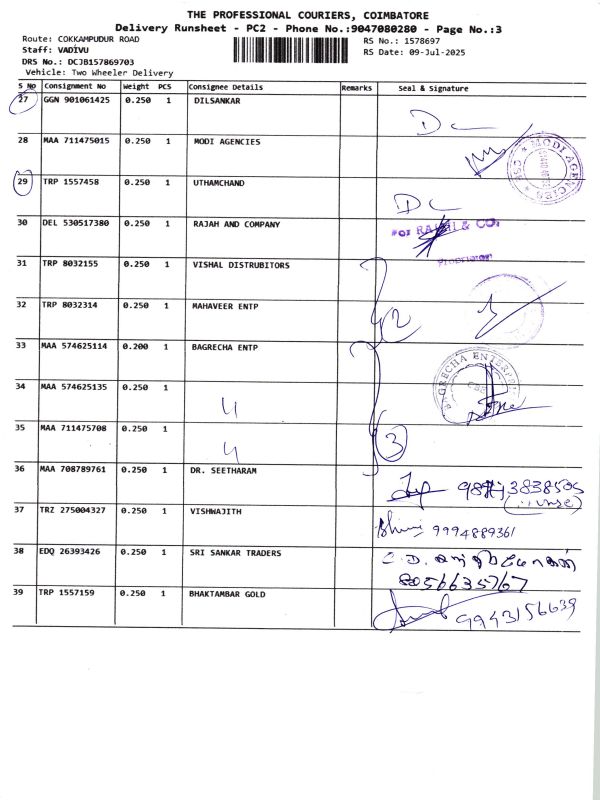 THE PROFESSIONAL COURIERS, COIMBATORE
Delivery Runsheet - PC2 - Phone No.:9047080280 - Page No.:3
Route: COKKAMPUDUR ROAD
Staff: VADIVU
DRS No.: DCJB157869703
Vehicle: Two Wheeler Delivery
RS No.: 1578697
RS Date: 09-Jul-2025
S No Consignment No Weight PCS Consignee Details Remarks Seal & Signature
27 GGN 901061425 0.250 1 DILSANKAR DC
28 MAA 711475015 0.250 1 MODI AGENCIES
MODI AGENCIES
29 TRP 1557458 0.250 1 UTHAMCHAND DC
30 DEL 530517380 0.250 1 RAJAH AND COMPANY
For RAJAH & CO.,
Proprietor
31 TRP 8032155 0.250 1 VISHAL DISTRUBITORS
32 TRP 8032314 0.250 1 MAHAVEER ENTP 2
33 MAA 574625114 0.200 1 BAGRECHA ENTP
BAGRECHA ENTERPRISE
34 MAA 574625135 0.250 1 "
35 MAA 711475708 0.250 1 " 3
36 MAA 708789761 0.250 1 DR. SEETHARAM
37 TRZ 275004327 0.250 1 VISHWAJITH 9994889361
38 EDQ 26393426 0.250 1 SRI SANKAR TRADERS
8056635767
39 TRP 1557159 0.250 1 BHAKTAMBAR GOLD 9943156639